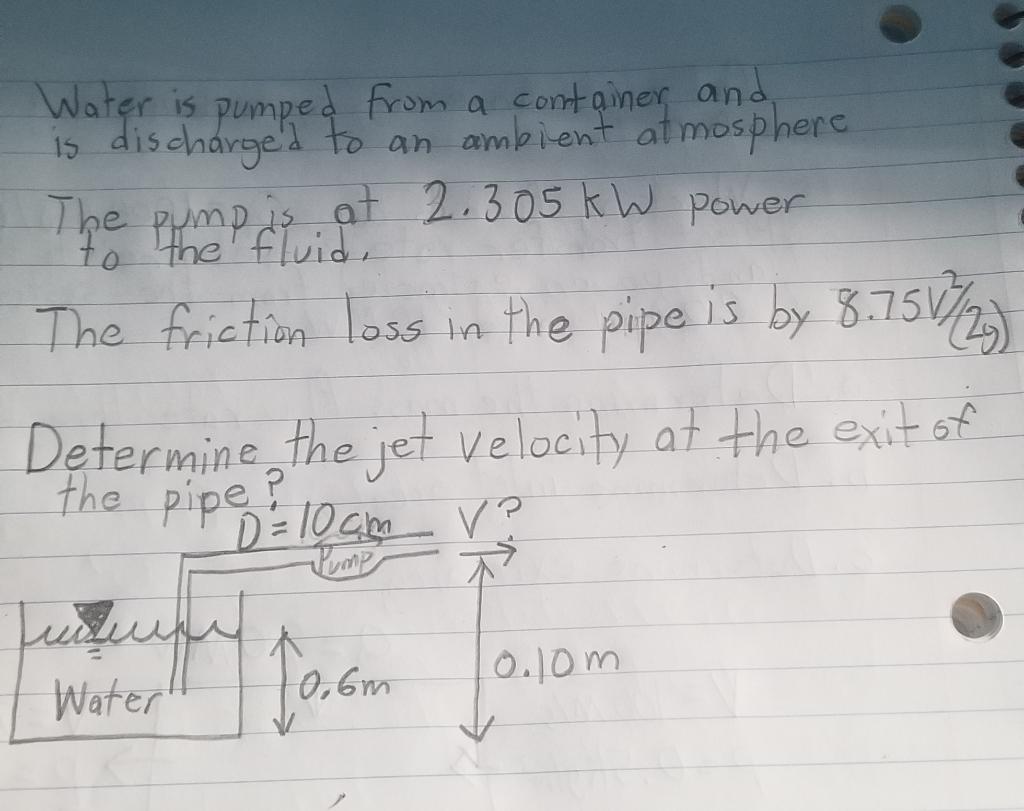 Water is pumped from a container and
is discharged to an ambient atmosphere
The pump is at 2.305 kW power
to the fluid.
The friction loss in the pipe is by 8.75V²/(2g)
Determine the jet velocity at the exit of
the pipe?
D = 10 cm V?
Pump
0.10 m
Water 0.6m